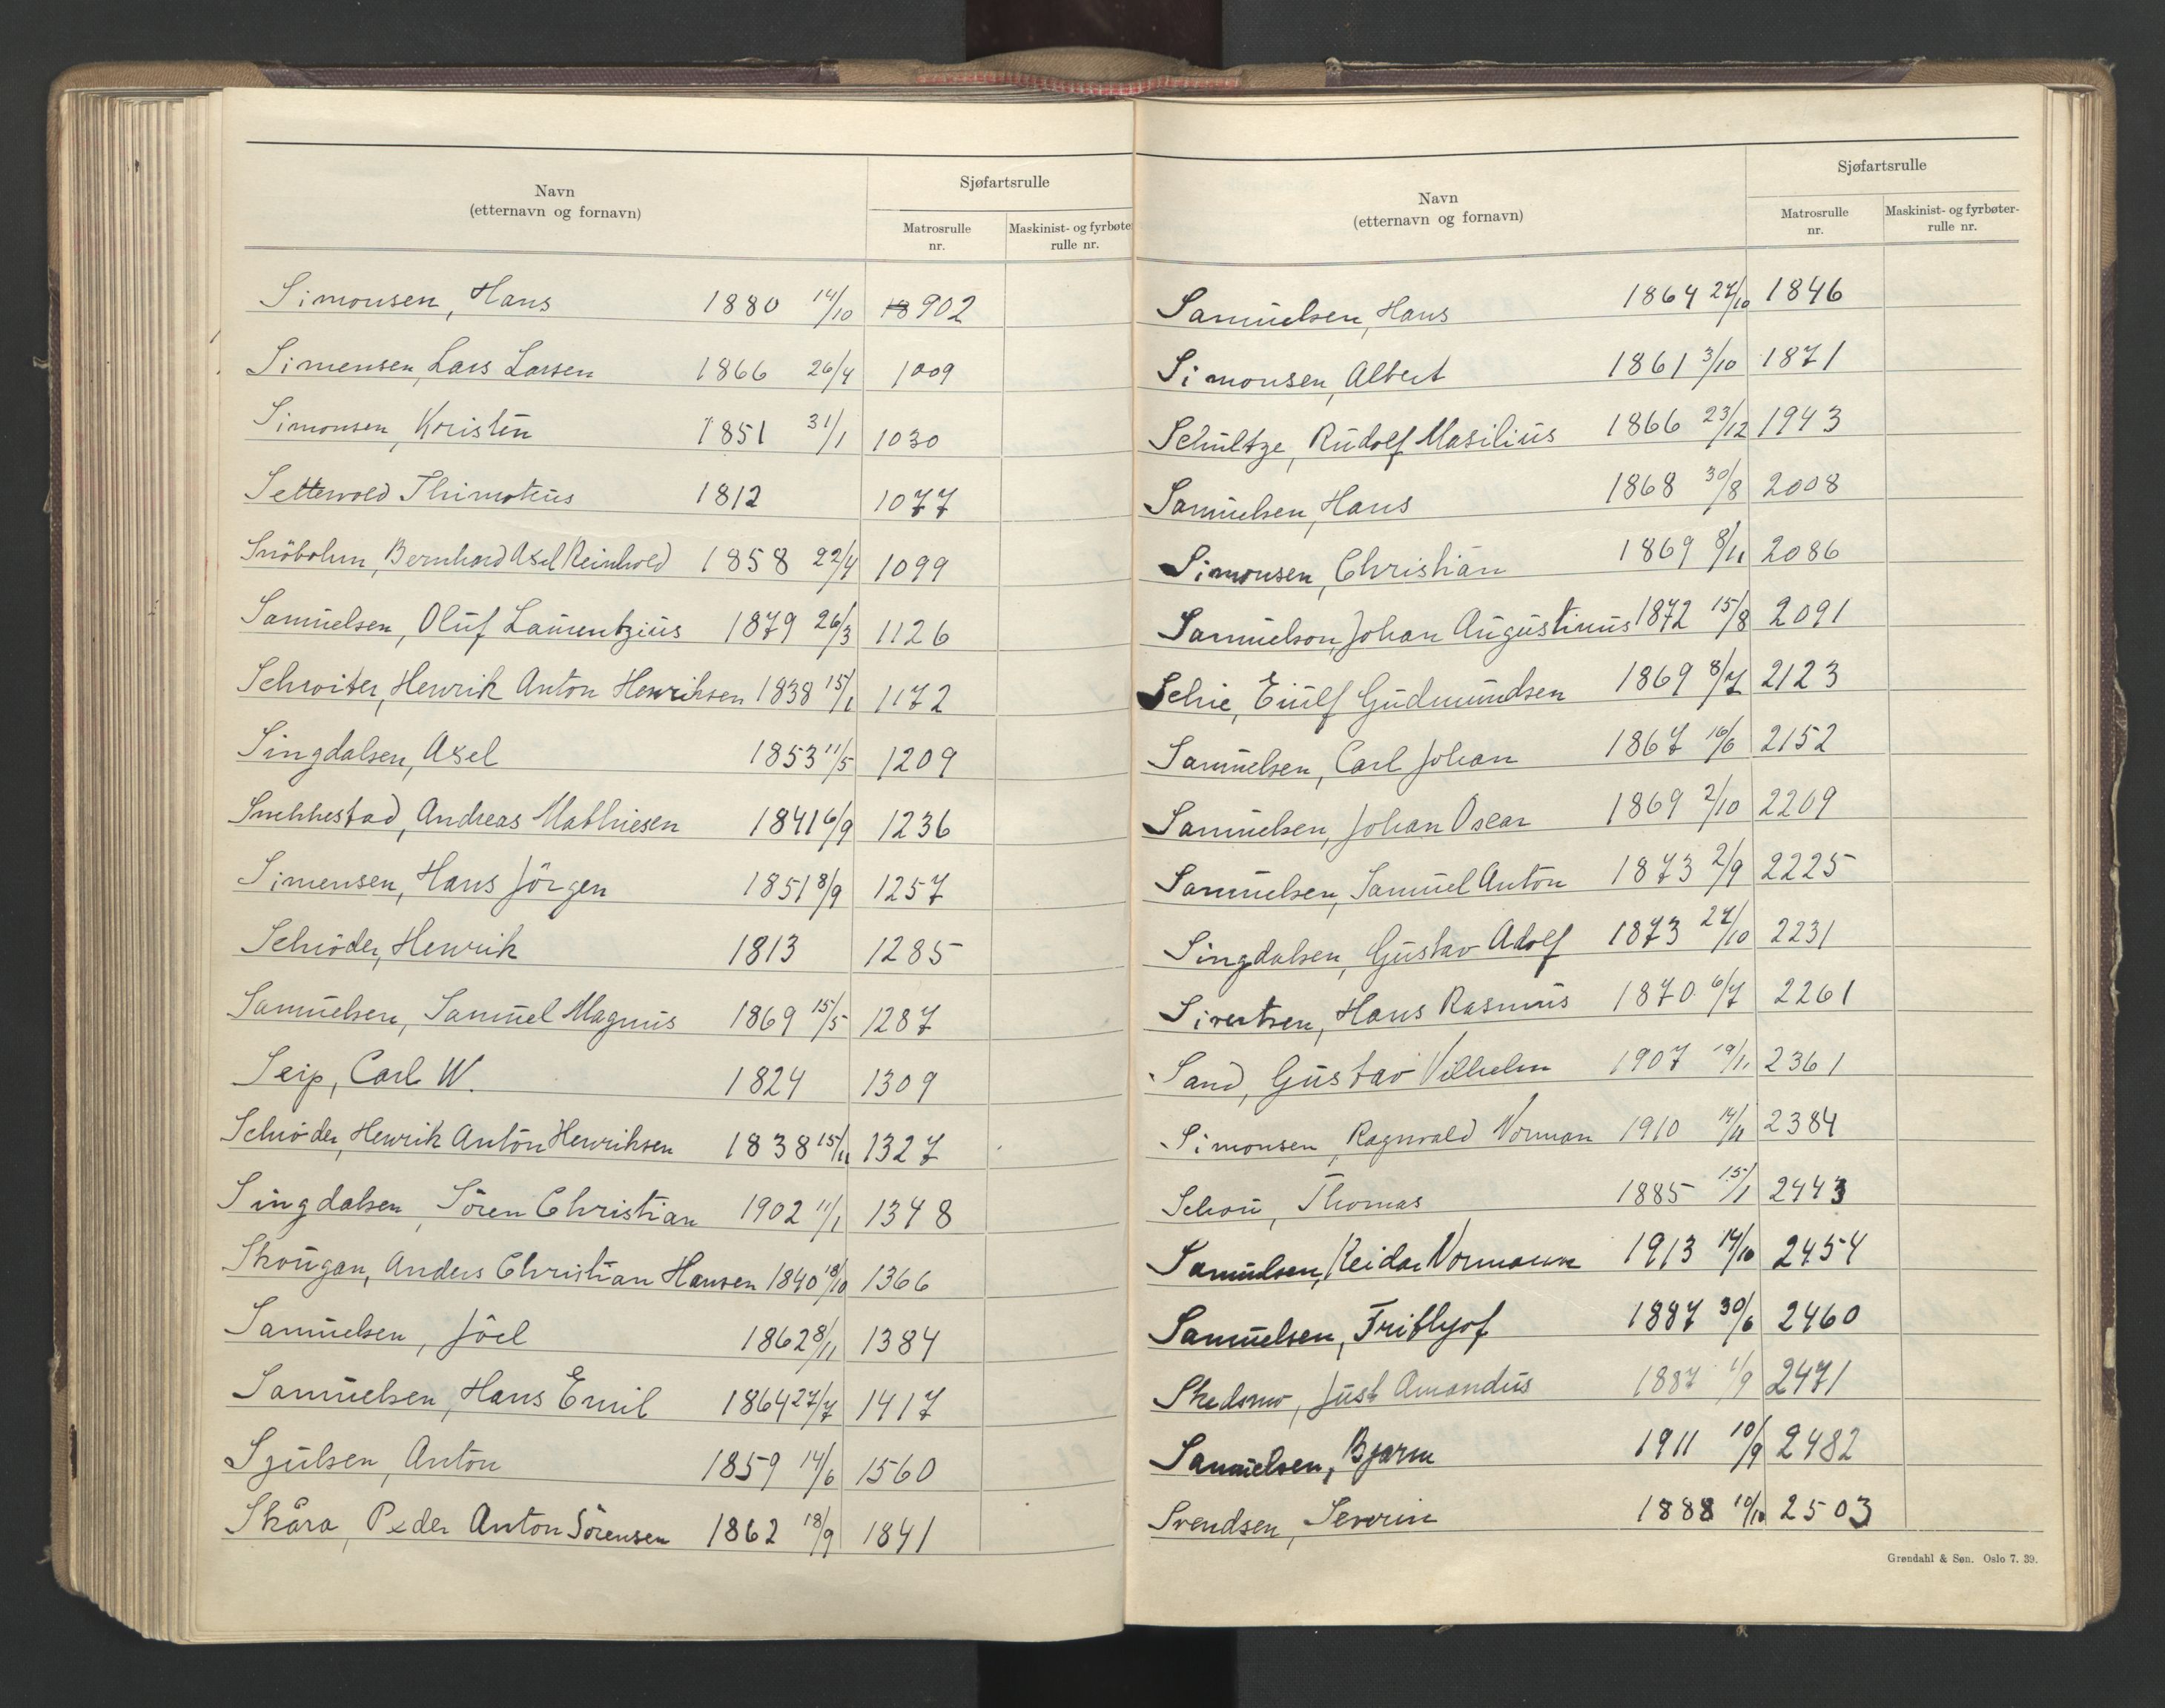 Navn
(etternavn og fornavn)
Sjøfartsrulle
Matrosrulle
nr.
Maskinist- og fyrbøte
rulle nr.
Simonsen, Hans 1880 14/10 902
Simensen, Lars Larsen 1866 26/4 1009
Simonsen, Kristen 1851 31/1 1030
Settevold Thimoteus 1812 1077
Snöbohm, Bernhard Axel Reinhold 1858 22/4 1099
Samuelsen, Oluf Laurentzius 1879 26/3 1126
Schröter, Henrik Anton Henriksen 1838 15/1 1172
Singdalsen, Axel 1853 11/5 1209
Snekkestad, Andreas Mathiesen 1841 6/9 1236
Simensen, Hans Jörgen 1851 8/9 1257
Schröder, Henrik 1813 1285
Samuelsen, Samuel Magnus 1869 15/5 1287
Seip, Carl W. 1824 1309
Schröder, Henrik Anton Henriksen 1838 15/11 1327
Singdalsen, Sören Christian 1902 11/1 1348
Skougan, Anders Christian Hansen 1840 18/10 1366
Samuelsen, Joel 1862 8/11 1384
Samuelsen, Hans Emil 1864 27/7 1417
Sjulsen, Anton 1859 14/6 1560
Skåra, Peder Anton Sörensen 1862 18/9 1841
Navn
(etternavn og fornavn)
Sjøfartsrulle
Matrosrulle
nr.
Maskinist- og fyrbøter-
rulle nr.
Samuelsen, Hans 1864 27/10 1846
Simonsen, Albert 1861 3/10 1871
Schultze, Rudolf Masilius 1866 23/12 1943
Samuelsen, Hans 1868 30/8 2008
Simonsen, Christian 1869 8/11 2086
Samuelson, Johan Augustinus 1872 15/8 2091
Schie, Eiulf Gudmundsen 1869 8/7 2123
Samuelsen, Carl Johan 1867 16/6 2152
Samuelsen, Johan Oscar 1869 2/10 2209
Samuelsen, Samuel Anton 1873 2/9 2225
Singdalsen, Gustav Adolf 1873 27/10 2231
Sivertsen, Hans Rasmus 1870 6/7 2261
Sand, Gustav Vilhelm 1907 19/11 2361
Simonsen, Ragnvald Norman 1910 14/11 2384
Schou, Thomas 1885 15/1 2443
Samuelsen, Reidar Normann 1913 14/10 2454
Samuelsen, Frithjof 1887 30/6 2460
Skedsmo, Just Amandus 1887 1/9 2471
Samuelsen, Bjarne 1911 10/9 2482
Svendsen, Severin 1888 10/10 2503
Grøndahl & Søn. Oslo 7. 39.